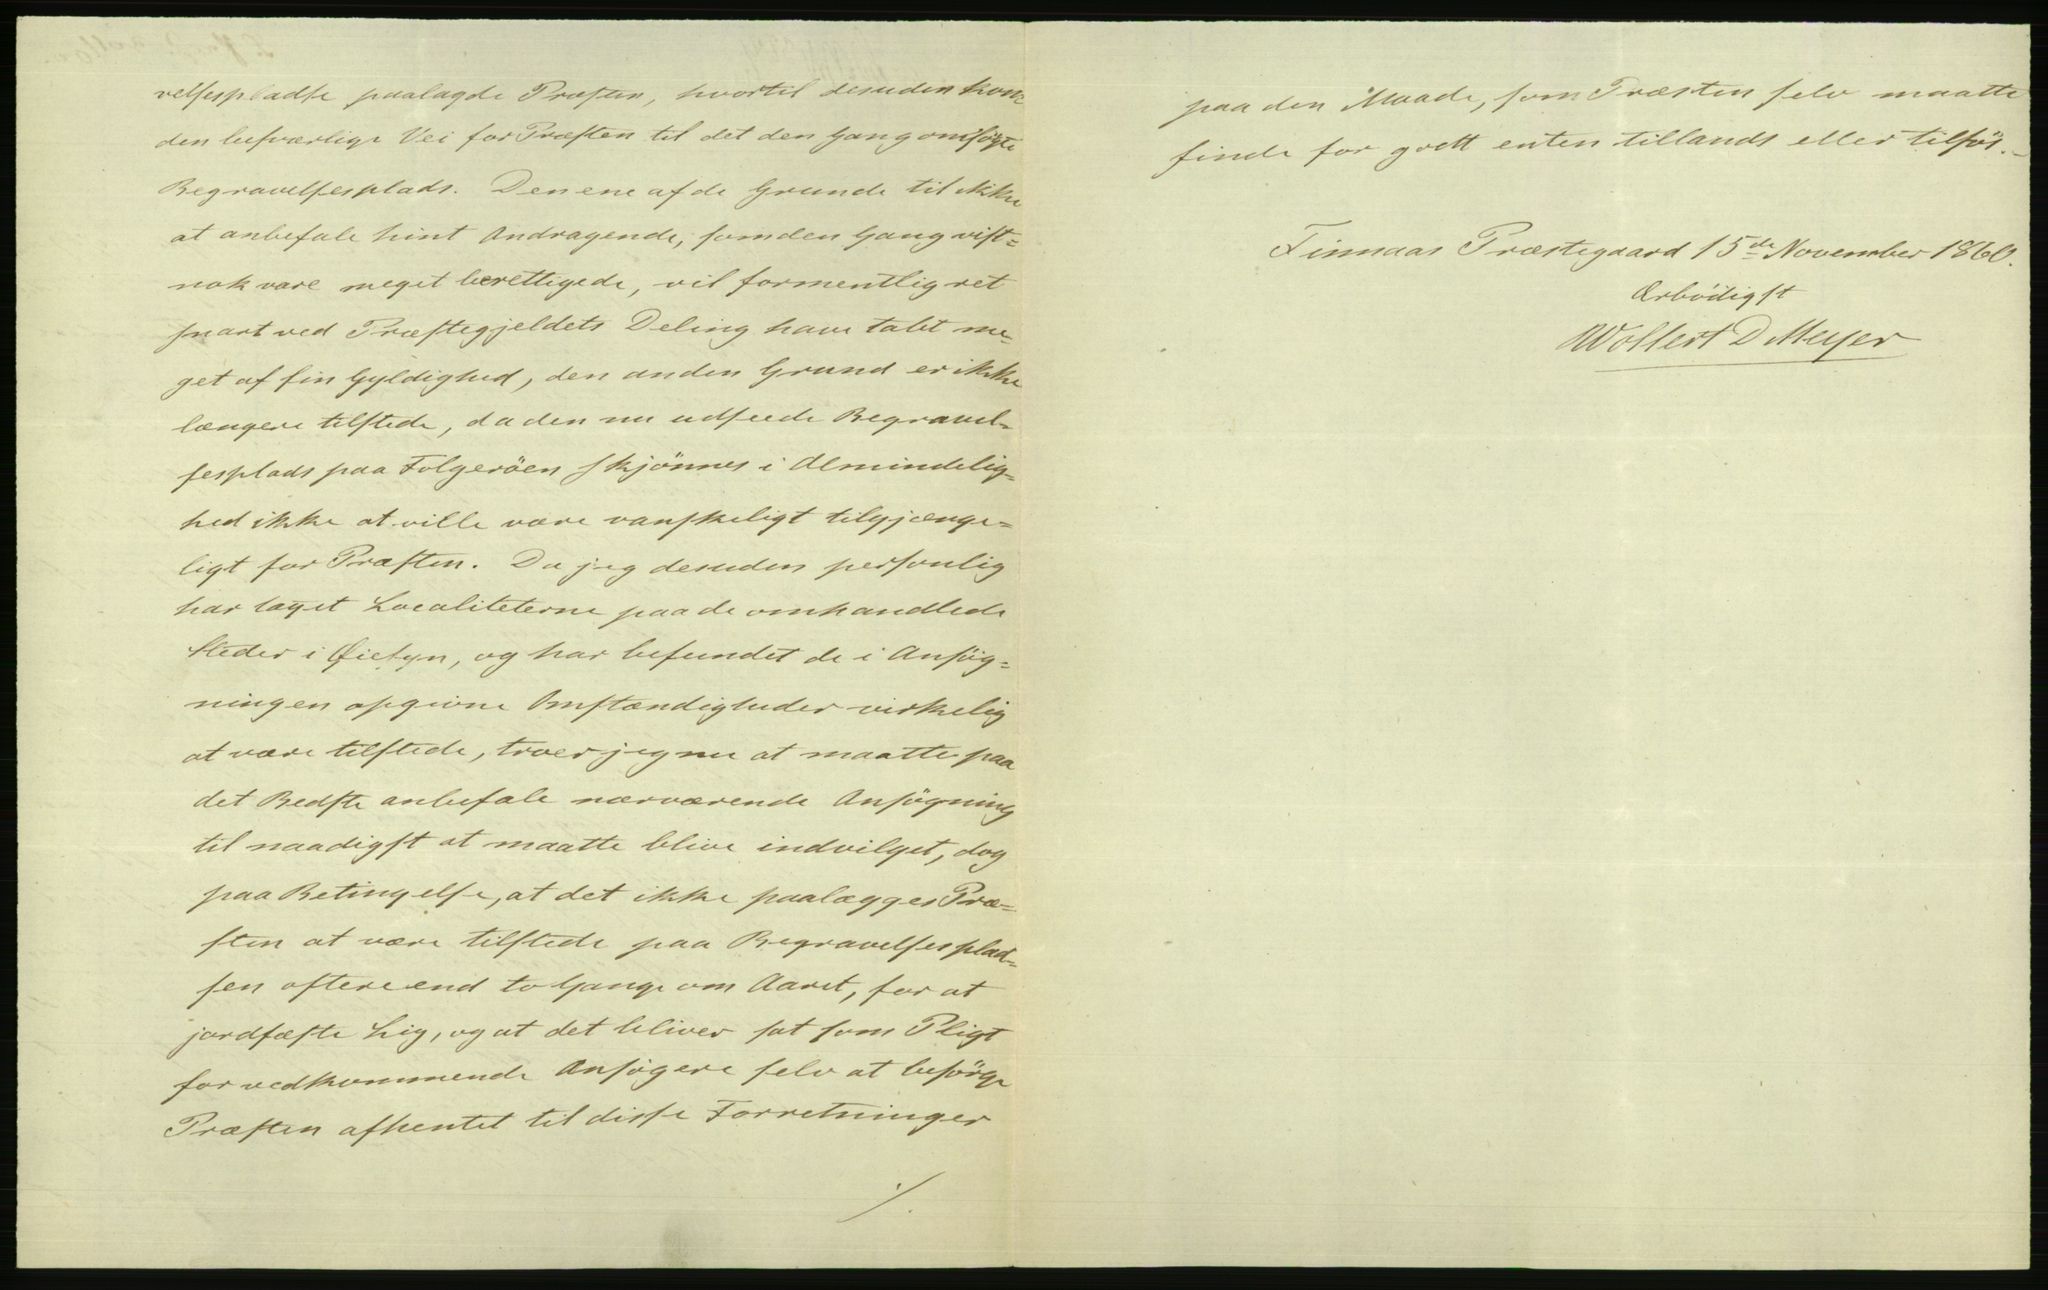 velsespladse paalagde Præsten, hvortil desuden kom
den besværlige Vei for Præsten til det den Gang omsögte
Begravelsesplads. Den ene af de Grunde til ikke
at anbefale hint Andragende, som den Gang vist-
nok vare meget berettigede, vil formentlig ret
snart ved Præstegjeldets Deling have tabt me-
get af sin Gyldighed, den anden Grund er ikke
længere tilstede, da den nu udseede Begravel-
sesplads paa Folgeröen skjönnes i Almindelig-
hed ikke at ville være vanskeligt tilgjænge-
ligt for Præsten. Da jeg desuden personlig
har taget Localiteterne paa de omhandlede
Steder i Øiesyn, og har befundet de i Ansög-
ningen opgivne Omstændigheder virkelig
at være tilstede, troer jeg nu at maatte paa
det Bedste anbefale nærværende Ansögning
til naadigst at maatte blive indvilget, dog
paa Betingelse, at det ikke paalægges Præ-
sten at være tilstede paa Begravelsesplad-
sen oftere end to Gange om Aaret, for at
jordfæste Lig, og at det bliver sat som Pligt
for vedkommende Ansögere selv at besörge
Præsten afhentet til disse Forretninger
./.
paa den Maade, som Præsten selv maatte
finde for godt enten tillands eller tilsös.-
Finnaas Præstegaard 15de November 1860.
Ærbödigst
Wollert D Meyer